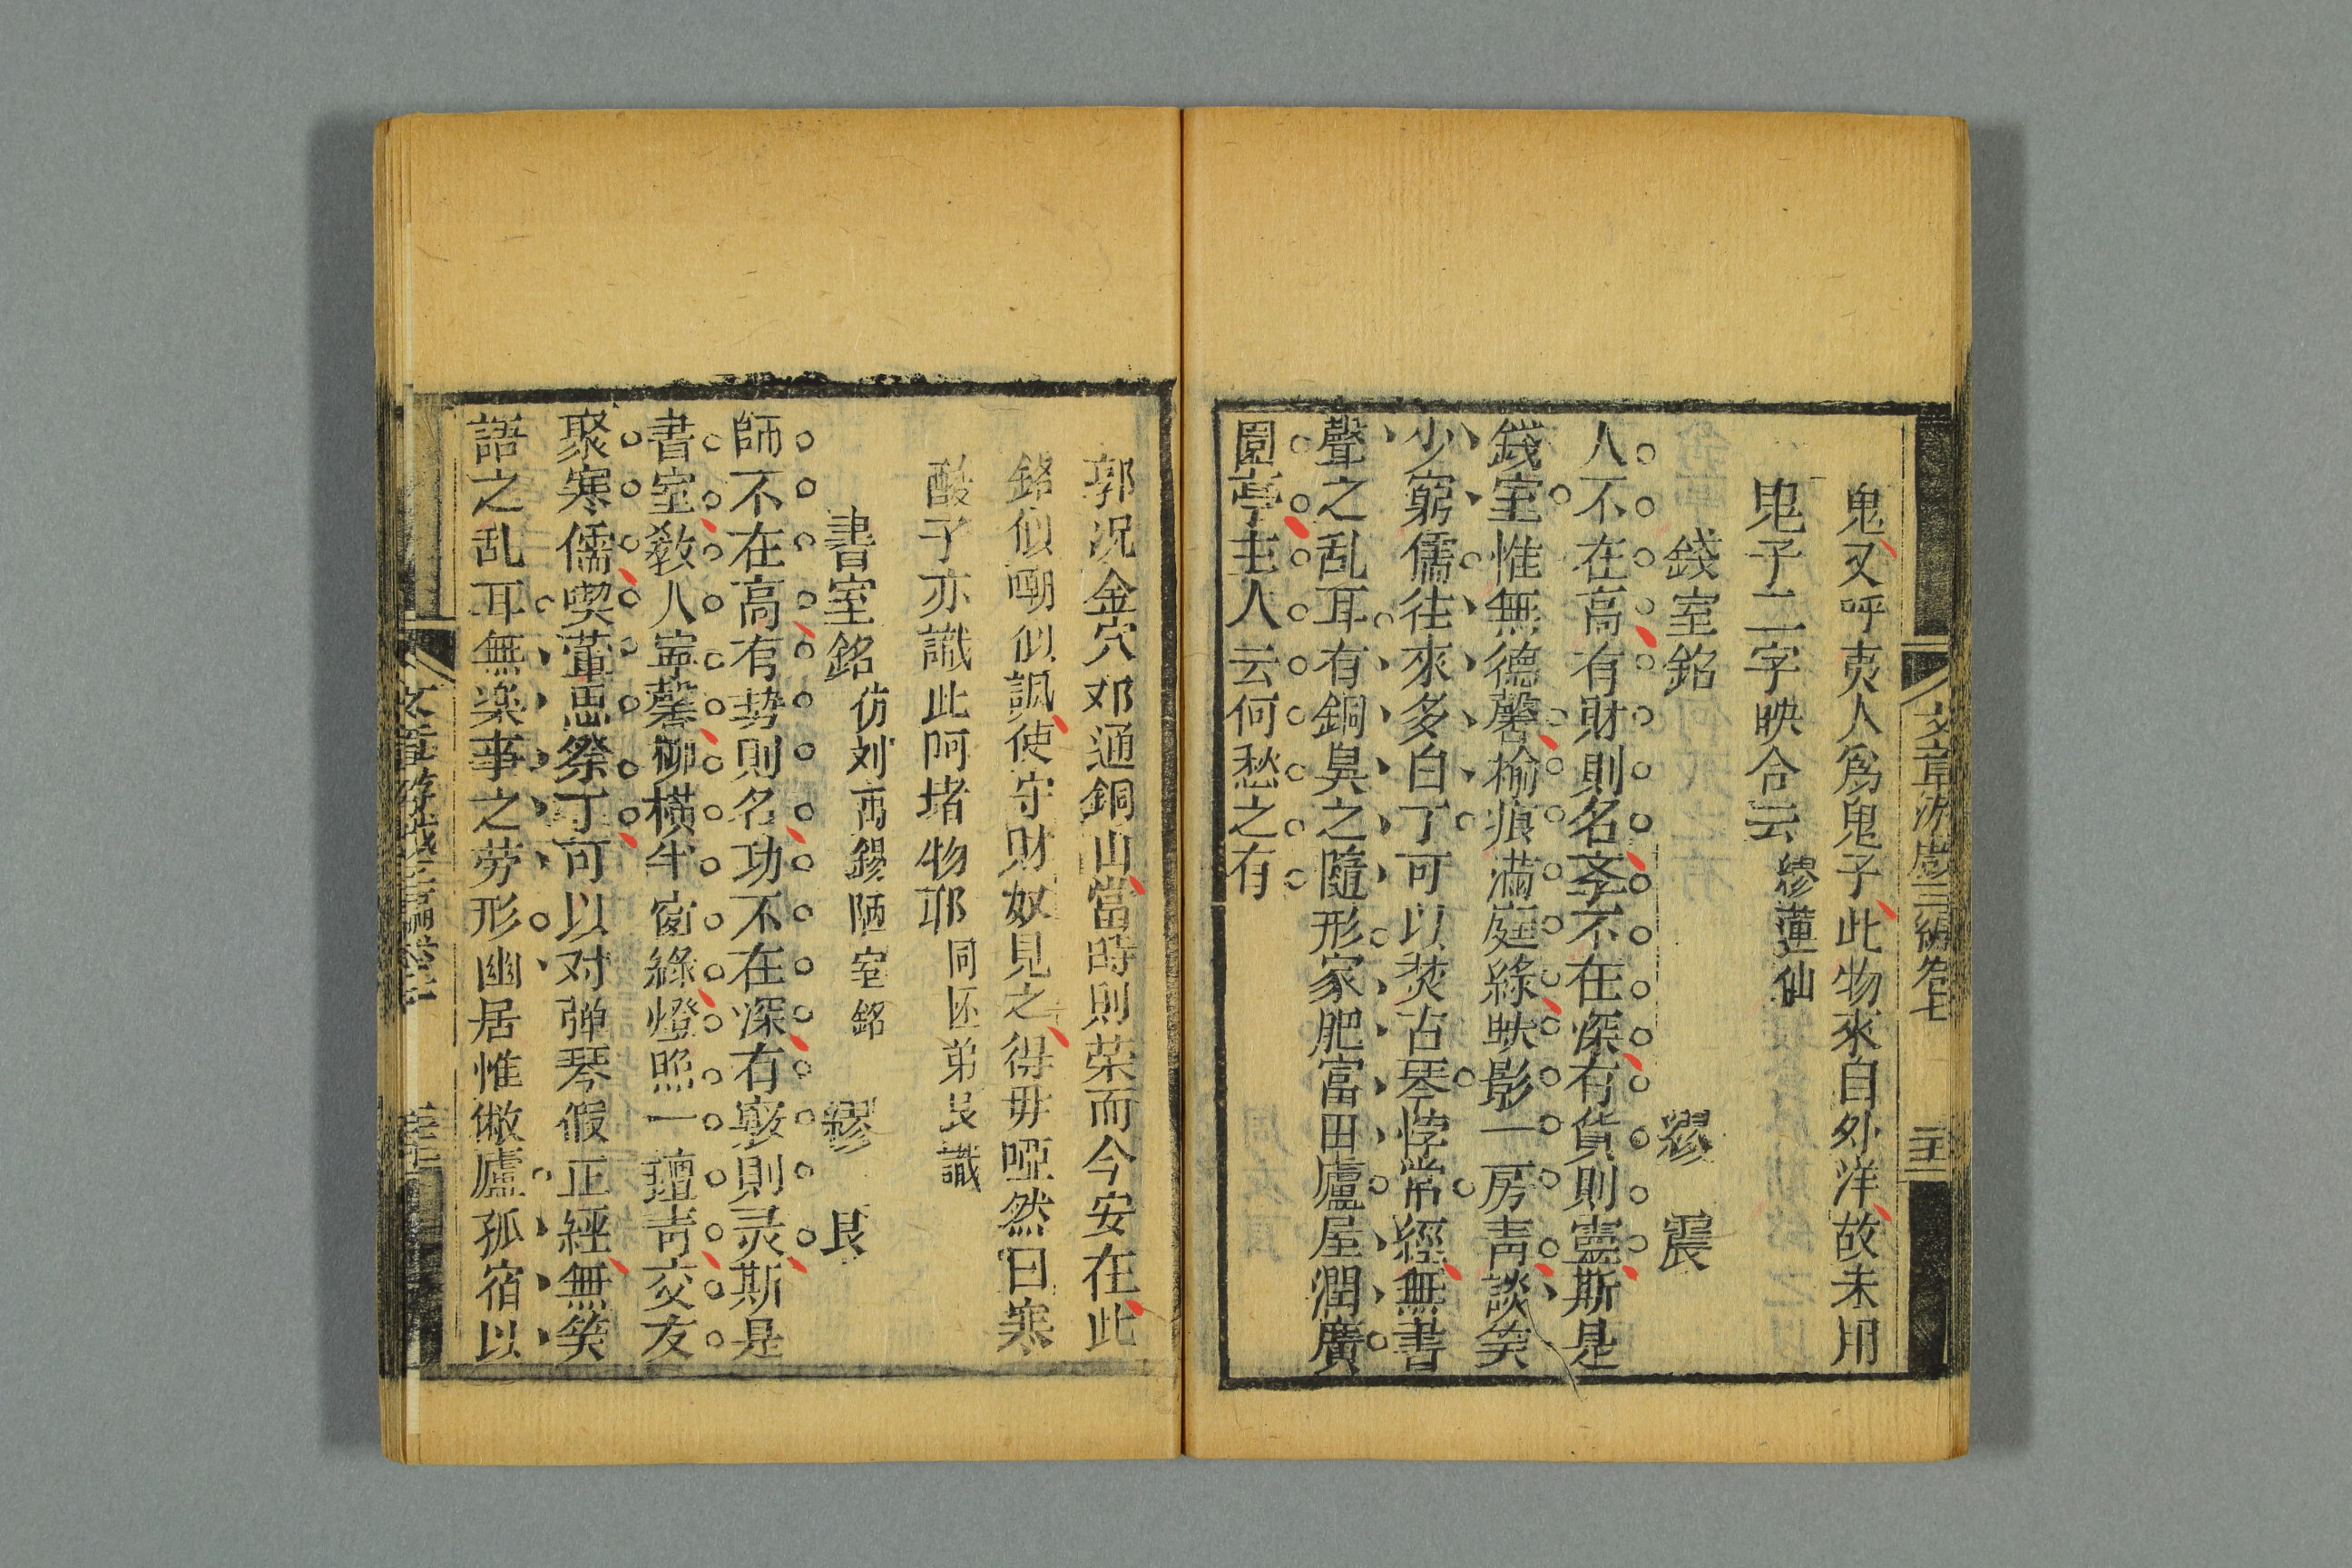 鬼又呼夷人爲鬼子此物來自外洋故未用
鬼子二字映合云 繆蓮仙
錢室銘 繆 震
人不在高有財則名吝不在深有貨則靈斯是
錢室惟無德馨榆痕滿庭綠映影一房靑談笑
少窮儒往來多白丁可以焚古琴悖常經無書
聲之乱耳有銅臭之隨形家肥富田廬屋潤廣
園亭主人云何愁之有
文章游戲三編卷七
郭况金穴邓通銅山當時則荣而今安在此
銘似嘲似諷使守財奴見之得毋啞然曰寒
酸子亦識此阿堵物耶 同懷弟艮識
書室銘 仿刘禹錫陋室銘 繆 艮
師不在高有势則名功不在深有竅則灵斯是
書室敎人寧馨柳橫半窗綠燈照一壇靑交友
聚寒儒喫葷思祭丁可以对弹琴假正經無笑
語之乱耳無楽事之劳形幽居惟敝廬孤宿以
文章游戲三編卷七